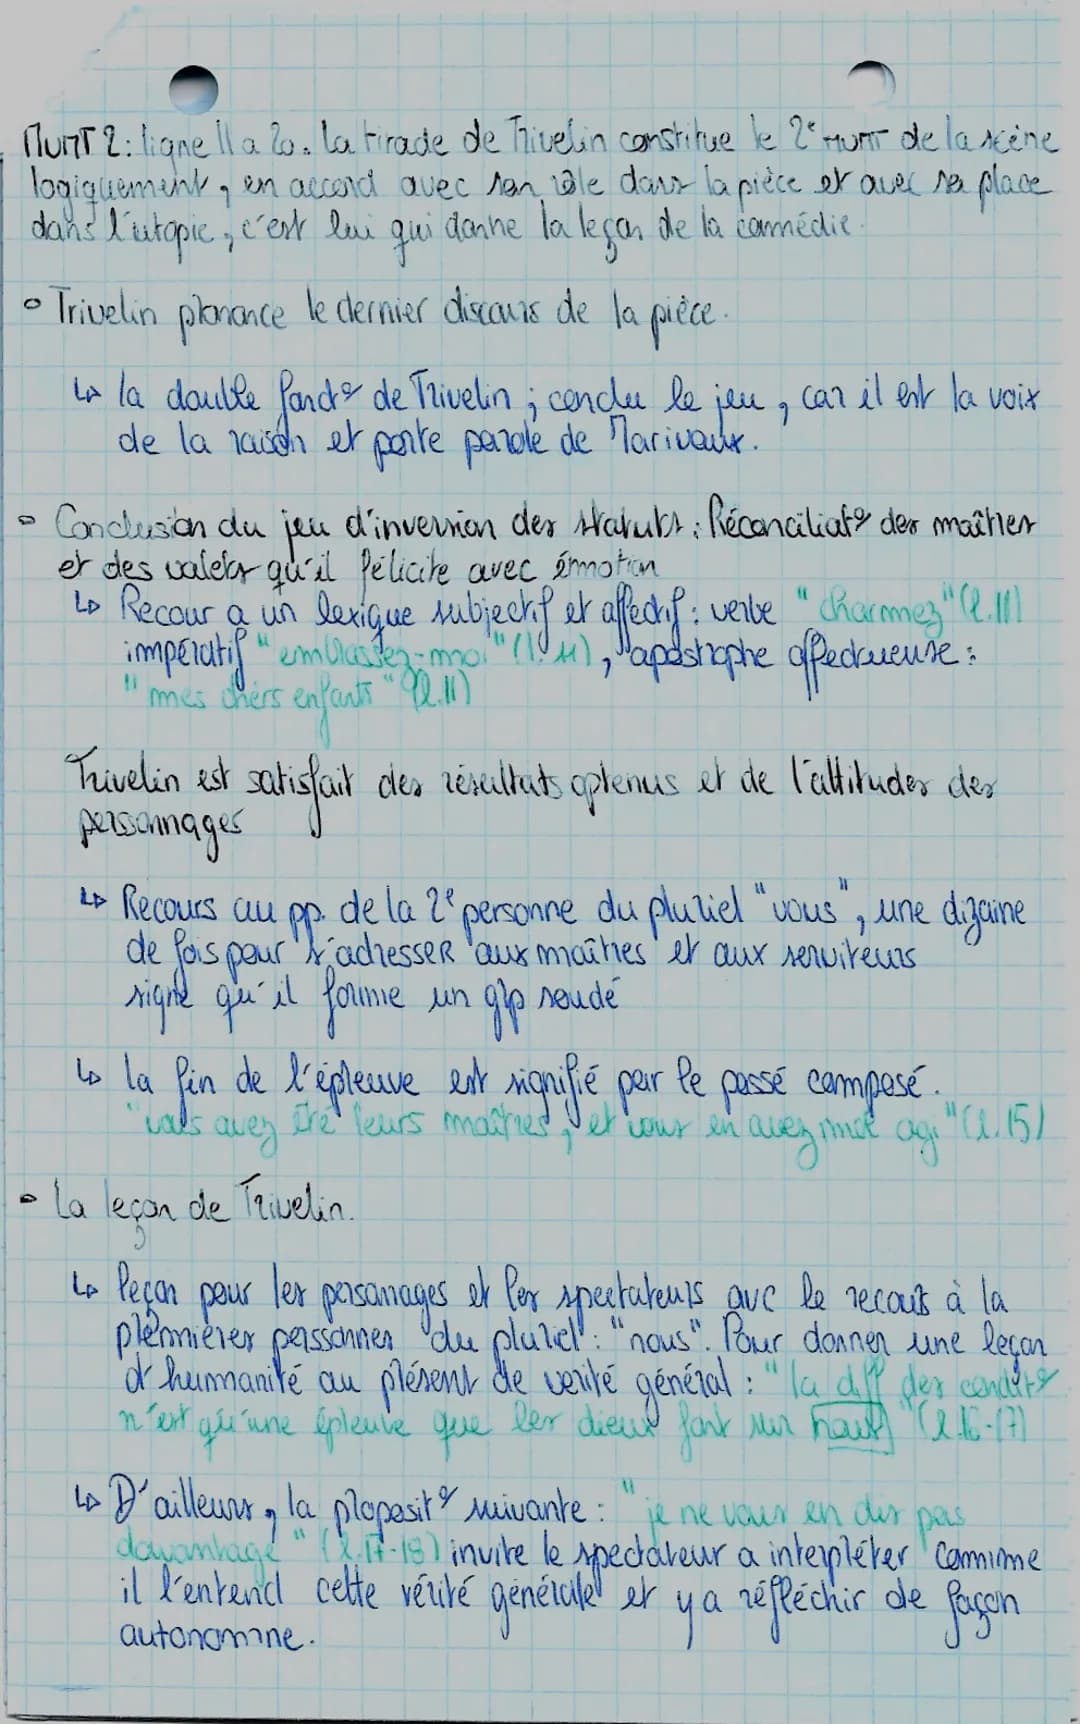 MVMT 2: ligne 11 a 20. la tirade de Trivelin constitue le 2e MVMT de la scène
logiquement, en accord avec son rôle dans la pièce et avec sa place
dans l'utopie, c'est lui qui donne la leçon de la commédie.
Trivelin prononce le dernier discours de la pièce.
↳ la double fonct° de Trivelin ; conclu le jeu, car il est la voix
de la raison et porte parole de Marivaux.
Conclusion du jeu d'inversion des statuts : Réconciliat° des maîtres
et des valets qu'il félicite avec émotion
↳ Recour a un lexique subjectif et affectif : verbe "charmez" (l.11)
impératif "embrassez-moi" (l.11), apostrophe affectueuse :
"mes chers enfants" (l.11)
Trivelin est satisfait des résultats optenus et de l'attitudes des
personnages
↳ Recours au pp. de la 2e personne du pluriel "vous", une dizaine
de fois pour s'adresser aux maîtres et aux serviteurs
signe qu'il forme un grp soudé
↳ la fin de l'épreuve est signifié par le passé composé.
"vous avez été leurs maîtres, et vous en avez mal agi" (l.15)
La leçon de Trivelin.
↳ leçon pour les personages et les spectateurs avc le recours à la
premières personnes du pluriel : "nous". Pour donner une leçon
d'humanité au présent de verité général : "la diff des condit°
n'est qu'une épreuve que les dieux font sur nous" (l.16-17)
↳ D'ailleurs, la proposit° suivante : "je ne vous en dis pas
davantage" (l.17-18) invite le spectateur a interpréter comme
il l'entend cette vérité générale et y a réfléchir de façon
autonomne.